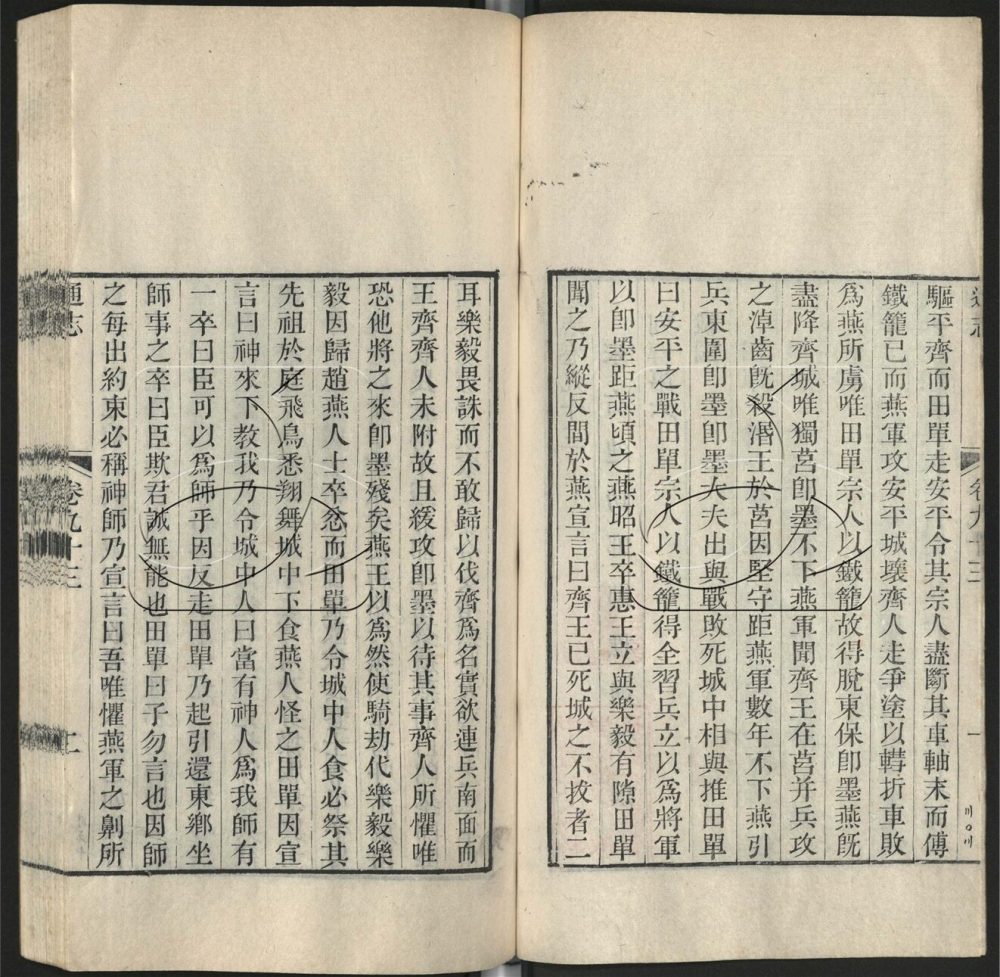 驅平齊而田單走安平令其宗人盡斷其車軸末而傅
鐵籠已而燕軍攻安平城壞齊人走爭塗以轊折車敗
爲燕所虜唯田單宗人以鐵籠故得脫東保卽墨燕旣
盡降齊城唯獨莒卽墨不下燕軍聞齊王在莒并兵攻
之淖齒旣殺湣王於莒因堅守距燕軍數年不下燕引
兵東圍卽墨卽墨大夫出與戰敗死城中相與推田單
曰安平之戰田單宗人以鐵籠得全習兵立以爲將軍
以卽墨距燕頃之燕昭王卒惠王立與樂毅有隙田單
聞之乃縱反間於燕宣言曰齊王已死城之不拔者二
耳樂毅畏誅而不敢歸以伐齊爲名實欲連兵南面而
王齊齊人未附故且緩攻卽墨以待其事齊人所懼唯
恐他將之來卽墨殘矣燕王以爲然使騎劫代樂毅樂
毅因歸趙燕人士卒忿而田單乃令城中人食必祭其
先祖於庭飛鳥悉翔舞城中下食燕人怪之田單因宣
言曰神來下教我乃令城中人曰當有神人爲我師有
一卒曰臣可以爲師乎因反走田單乃起引還東鄉坐
師事之卒曰臣欺君誠無能也田單曰子勿言也因師
之每出約束必稱神師乃宣言曰吾唯懼燕軍之劓所
通志 卷九十三 二